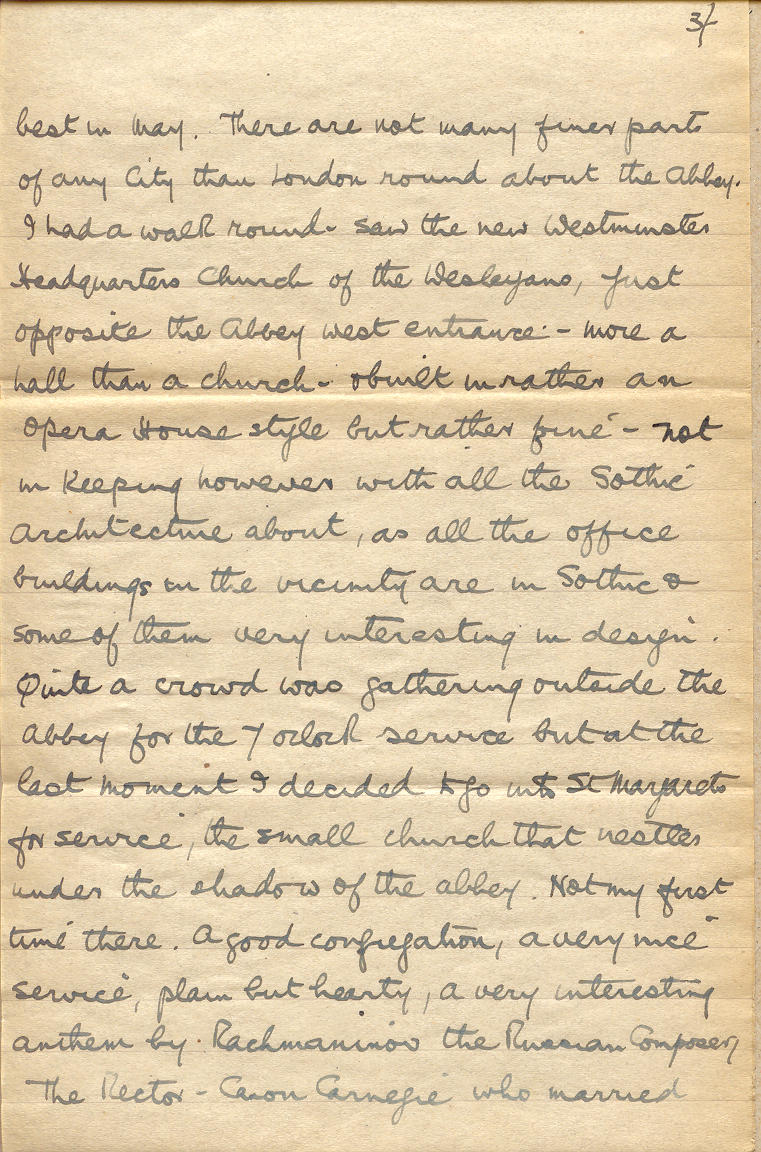 3/-
best in May. There are not many finer parts
of any City than London round about the Abbey.
I had a walk round - saw the new Westminster
Headquarters Church of the Wesleyans, just
opposite the Abbey west entrance - more a
hall than a church - & built in rather an
Opera House style but rather fine - not
in keeping however with all the Gothic
architecture about, as all the office
buildings in the vicinity are in Gothic &
some of them very interesting in design.
Quite a crowd was gathering outside the
Abbey for the 7 oclock service but at the
last moment I decided to go into St Margarets
for service, the small church that nestles
under the shadow of the abbey. Not my first
time there. A good congregation, a very nice
service, plain but hearty, a very interesting
anthem by Rachmaninov the Russian Composer,
The Rector - Canon Carnegie who married